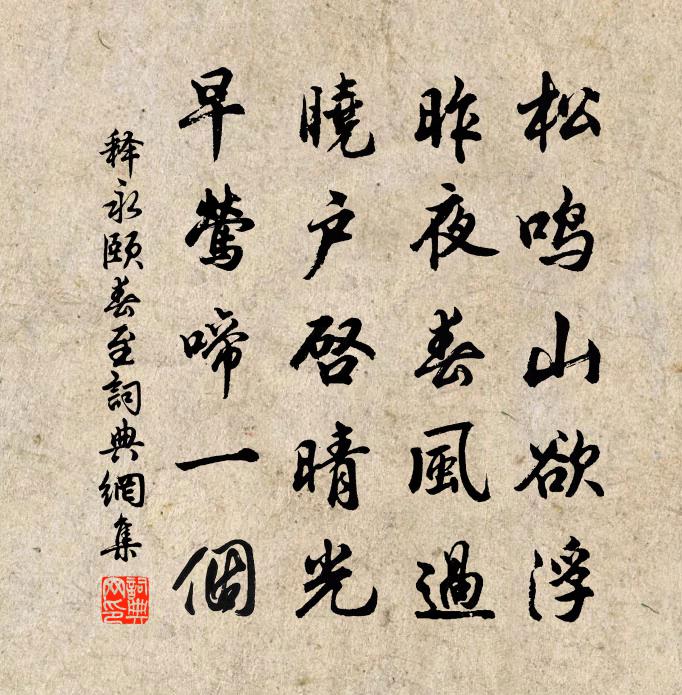 松鸣山欲浮
昨夜春風過
曉户啓晴光
早鶯啼一個
释永颐春至詞典網集
詞典网印